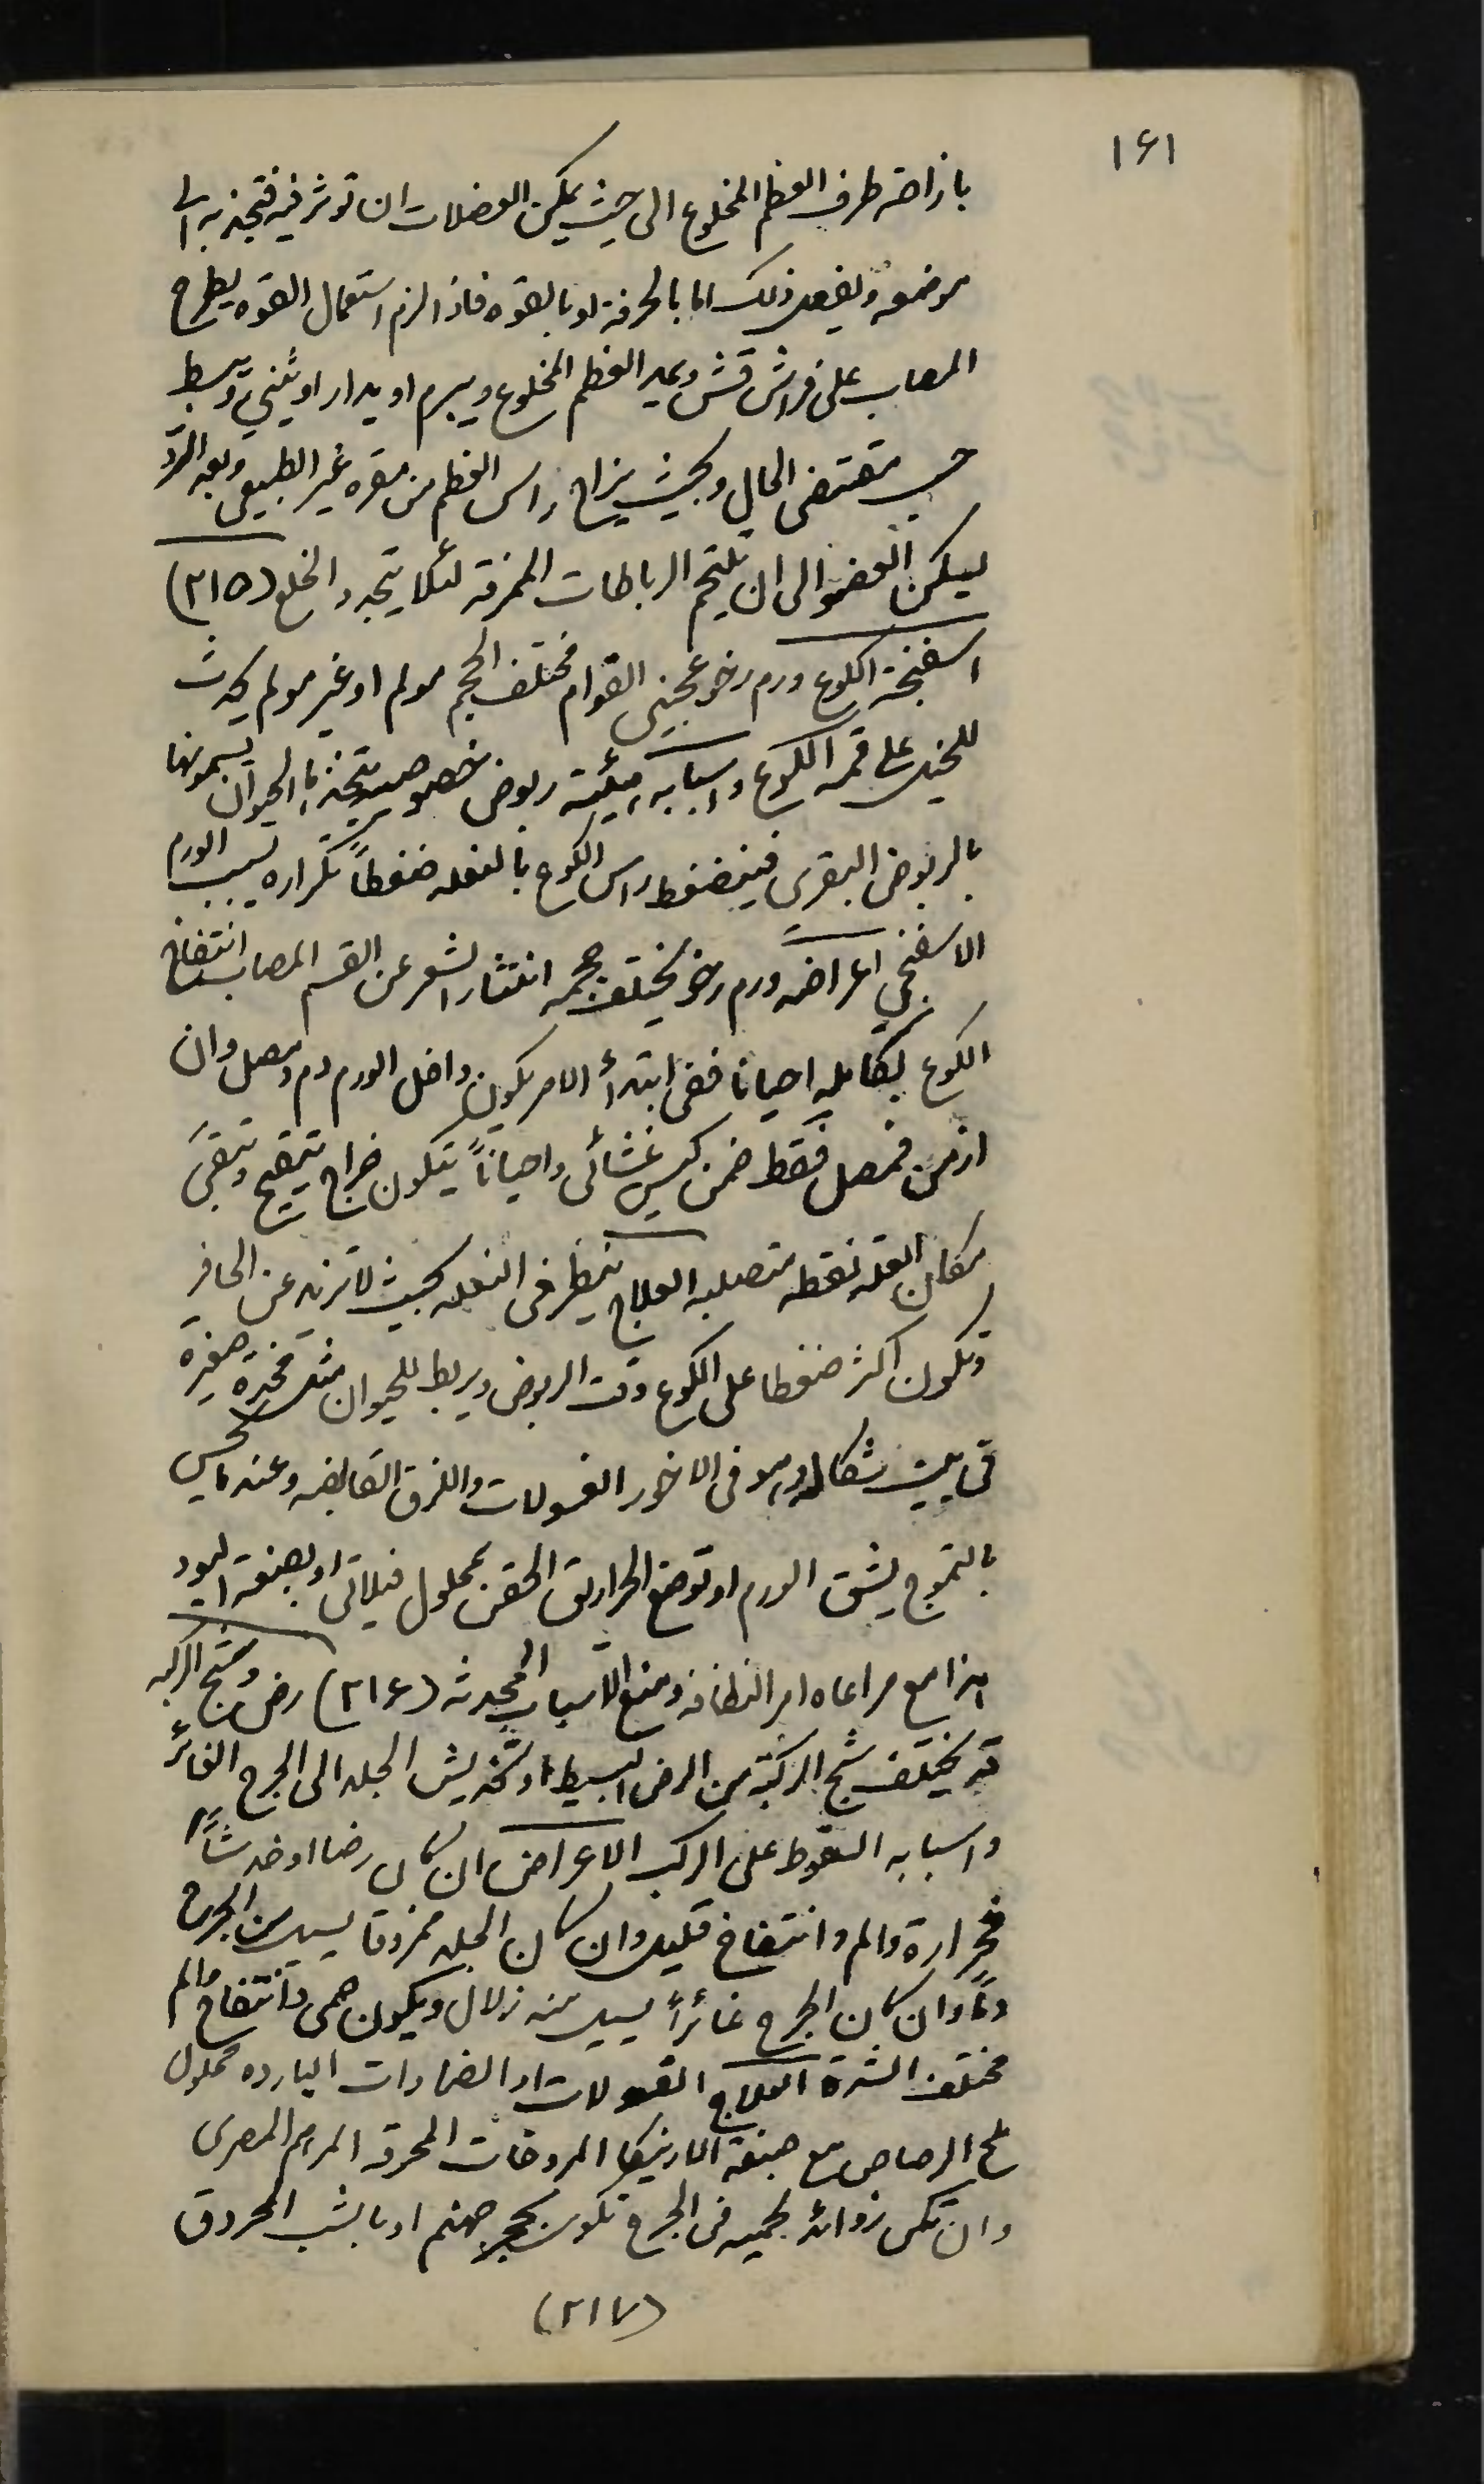 ١٦١
بازاحة طرف العظم المخلوع الى حيث يمكن العضلات ان تؤثر فيه فتجذبه الى
موضعه ويفعل ذلك اما بالحرفة او بالقوه فاذا لزم استعمال القوه يطرح
المصاب على فراش قش ويمد العظم المخلوع ويبرم او يدار او يثنى ويبسط
حسب مقتضى الحال وبحيث يزاح راس العظم من مقره غير الطبيعى وبعد الرد
ليسكن العضو الى ان تلتحم الرباطات الممزقة لئلا يتجدد الخلع (٢١٥)
اسفنجة الكوع ورم رخو عجينى القوام مختلف الحجم مولم او غير مولم يحدث
للخيل على قمه الكوع واسبابه هيئة ربوض خصوصيه يتخذها الحيوان يسمونها
بالربوض البقرى فينضغط راس الكوع بالنعله ضغطاً تكراره يسبب الورم
الاسفنجي اعراضه ورم رخو يختلف حجمه انتثار الشعر عن القسم المصاب انتفاخ
الكوع بكامله احيانا ففى ابتدأ الامر يكون داخل الورم دم ومصل وان
ازمن فمصل فقط ضمن كيس غشائى واحياناً يتكون خراج يتقيح وتبقى
مكان العله نقطه متصلبه العلاج ينظر فى النعله بحيث لا تزيد عن الحافر
وتكون اكثر ضغطا على الكوع وقت الربوض ويربط للحيوان مثل مخده صغيرة
فى بيت شكاله وهو فى الاخور الغسولات واللزق القابضه وعندما يحس
بالتموج يشق الورم او توضع الحراريق الحقن بمحلول فيلاتى او بصبغة اليود
هذا مع مراعاه امر النظافه ومنع الاسباب المحدثه (٢١٦) رض وشج الركبه
قد يختلف شج الركبة من الرض البسيط او تخديش الجلد الى الجرح الغائر
واسبابه السقوط على الركب الاعراض ان كان رضا او خدشاً
فحرارة والم وانتفاخ قليل وان كان الجلد ممزوقا يسيل من الجرح
دماً وان كان الجرح غائراً يسيل منه زلال ويكون حمى وانتفاخ والم
مختلف الشدة العلاج الغسولات او الضمادات البارده محلول
ملح الرصاص مع صبغة الارنيكا المروخات المحرقه المرهم المصرى
وان تكن زوائد لحميه فى الجرح تكون بحجر جهنم او بالشب المحروق
(٢١٧)